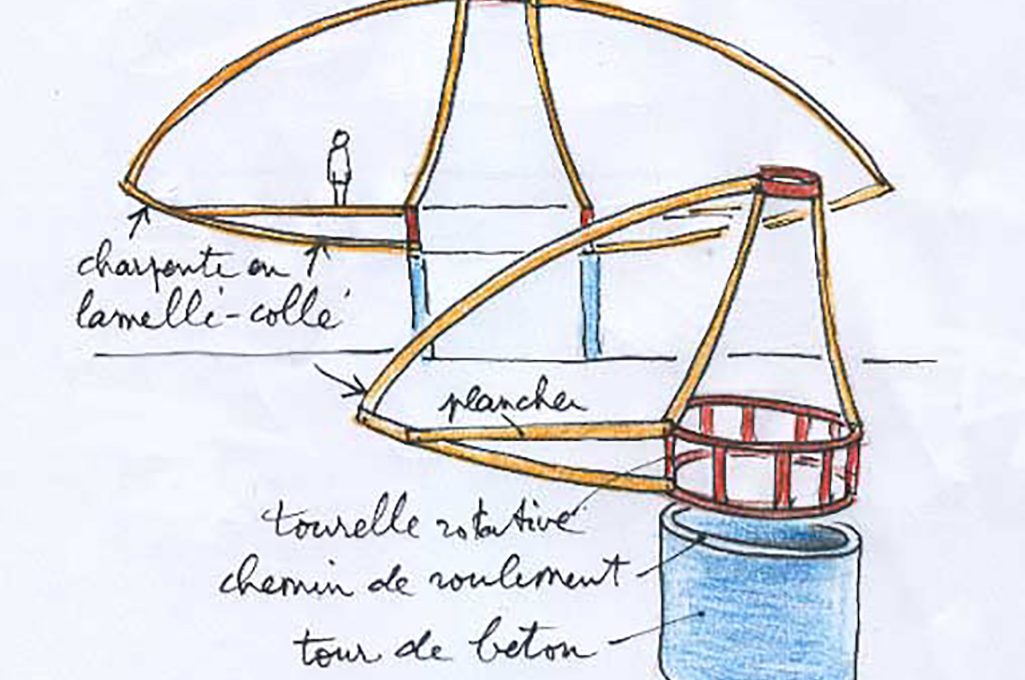 charpente en
lamellé-collé
plancher
tourelle rotative
chemin de roulement
tour de béton